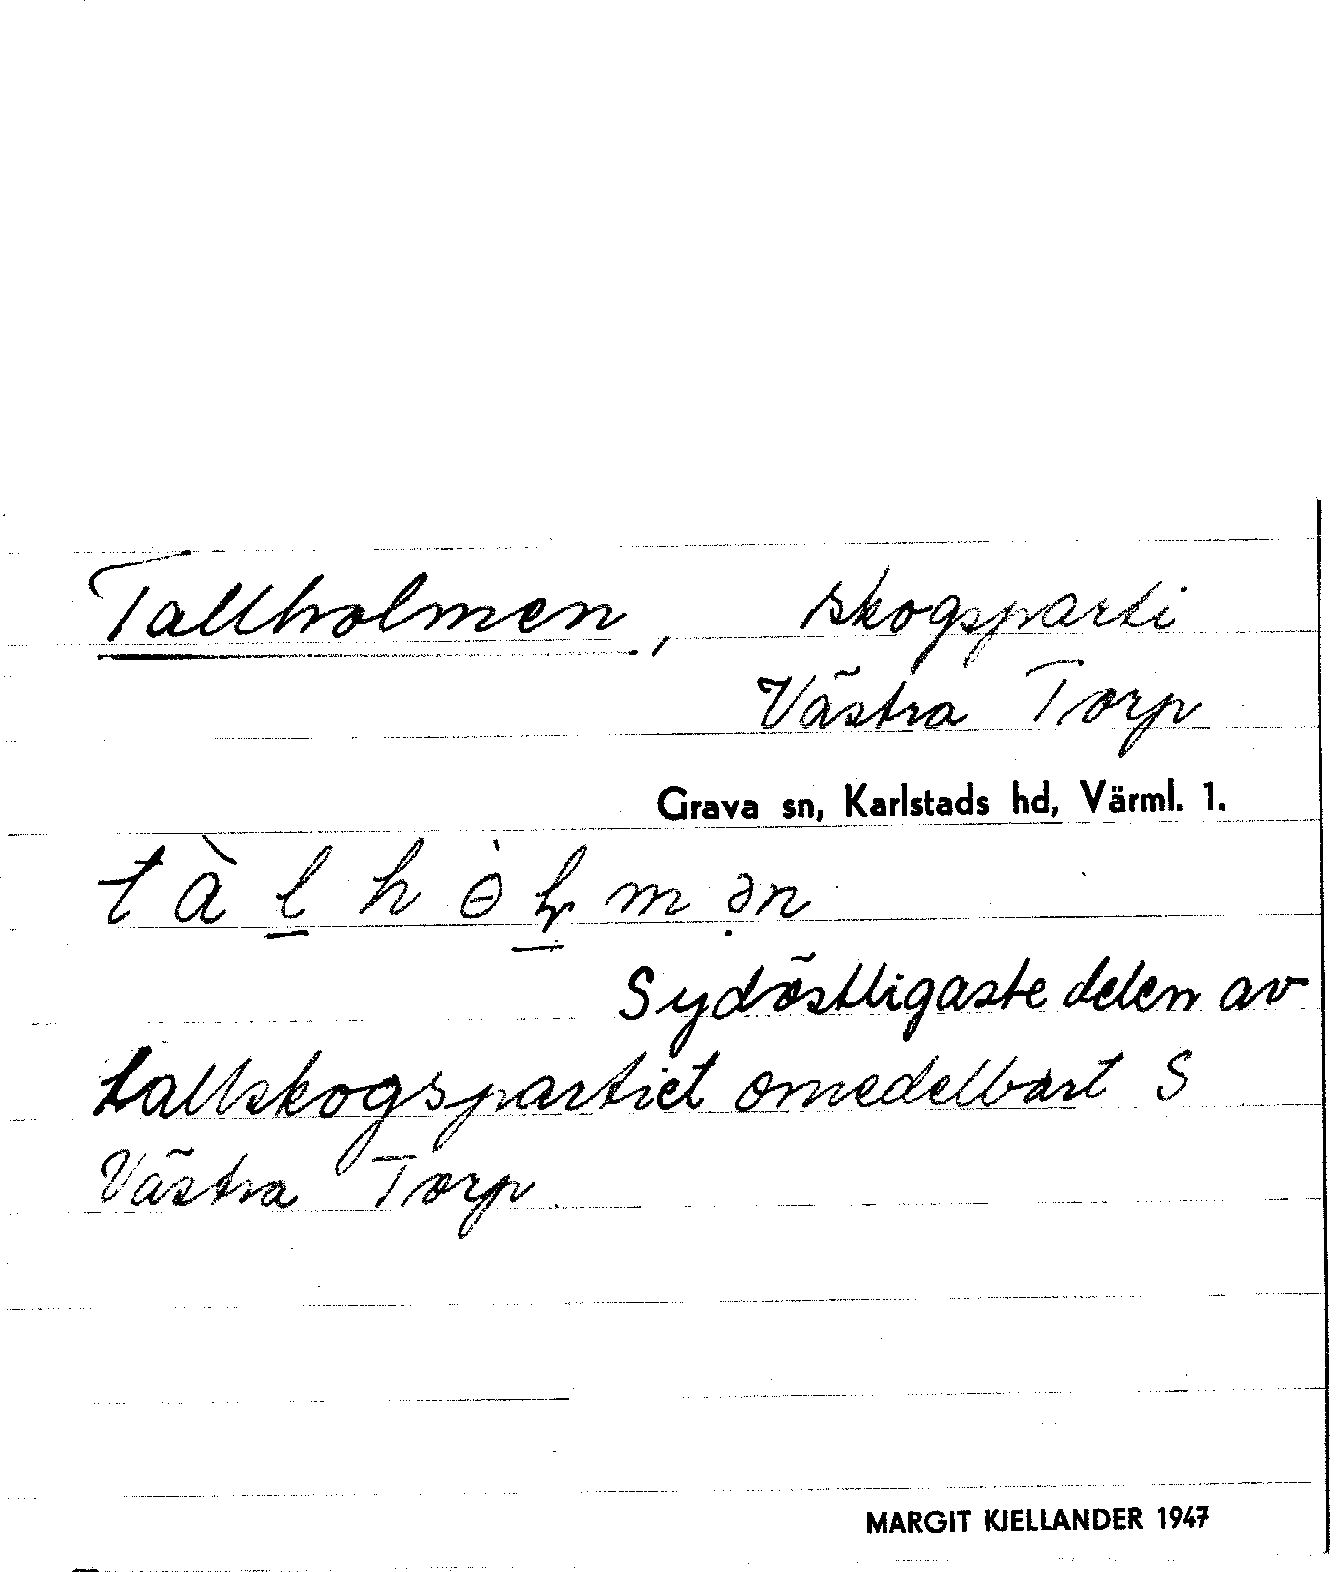 Tallholmen, skogsparti
Västra Torp
Grava sn, Karlstads hd, Värml. 1.
tàl̲hɵ̀l̲mə̣n
Sydöstligaste delen av
tallskogspartiet omedelbart S
Västra Torp
MARGIT KJELLANDER 1947